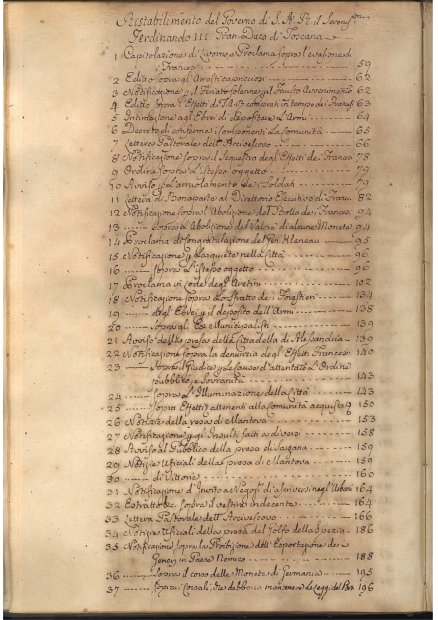 Ristabilimento del Governo di S. A. R. il Seren.mo
Ferdinando III Gran-Duca di Toscana
1 Capitolazione di Livorno e Proclama sopra l'evasione di
i Francesi 59
2 Editto sopra gl' 62
3 Notificazione p. il Fenato Solenne p. il fausto Avvenimento 62
4 Editto sopra l'Effetti di comprati in tempo dei Francesi 63
5 Intimazione agl' Ebrei di depositare l'Armi 64
6 Decreto di conferma i Componenti la Comunità 65
7 Lettera Pastorale dell' Arcivescovo 66
8 Notificazione sopra il Sequestro degl' Effetti dei Francesi 78
9 Ordine sopra l'istesso oggetto 79
10 Avviso p. l'arruolamento dei Soldati 79
11 Lettera di Bonaparte al Direttorio Esecutivo di Francia 82
12 Notificazione sopra l'Abolizione del Bollo dei Francesi 94
13 sopra l'Abolizione del Valore di alcune Monete 94
14 Proclama di Congratulazione del Gen. Klenau 95
15 Notificazione p. la quiete nella Città 96
16 sopra l'istesso oggetto 96
17 Proclama in lode degl' Aretini 102
18 Notificazione sopra lo Sfratto dei Forestieri 134
19 degl' Ebrei p. il deposito dell' Armi 138
20 sopra gli Ex Municipalisti 139
21 Avviso della presa della Cittadella di Alessandria 139
22 Notificazione sopra la denunzia degl' Effetti Francesi 140
23 sopra il Giudice p. le Cause d'attentato l'Ordine
pubblico e Sovranità 143
24 sopra l'Illuminazione della Città 143
25 sopra Effetti attenenti alla Comunità acquistati 150
26 Notizia della resa di Mantova 153
27 Notificazione p. gl' Insulti fatti a diversi 158
28 Avviso al Pubblico della presa di Sarzana 159
29 Notizie Uficiali della presa di Mantova 159
30 di Vittorie 160
31 Notificazione d'Invito a Negozj di ascriversi negl' Usbari 164
32 Estratto sopra il vestire indecente 164
33 Lettera Pastorale dell' Arcivescovo 166
34 Notizie Uficiali della presa del Golfo della Spezia 186
35 Notificazione sopra la Proibizione dell' Esportazione dei
Generi in Paese Nemico 188
36 sopra il corso delle Monete di Germania 195
37 sopra i Corsali che debbono mantenere le Leggi del Porto 196